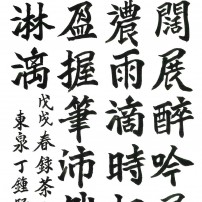 闊展醉吟
濃雨滴時
盈握筆沛
淋漓
戊戌春録茶
東泉丁鍾